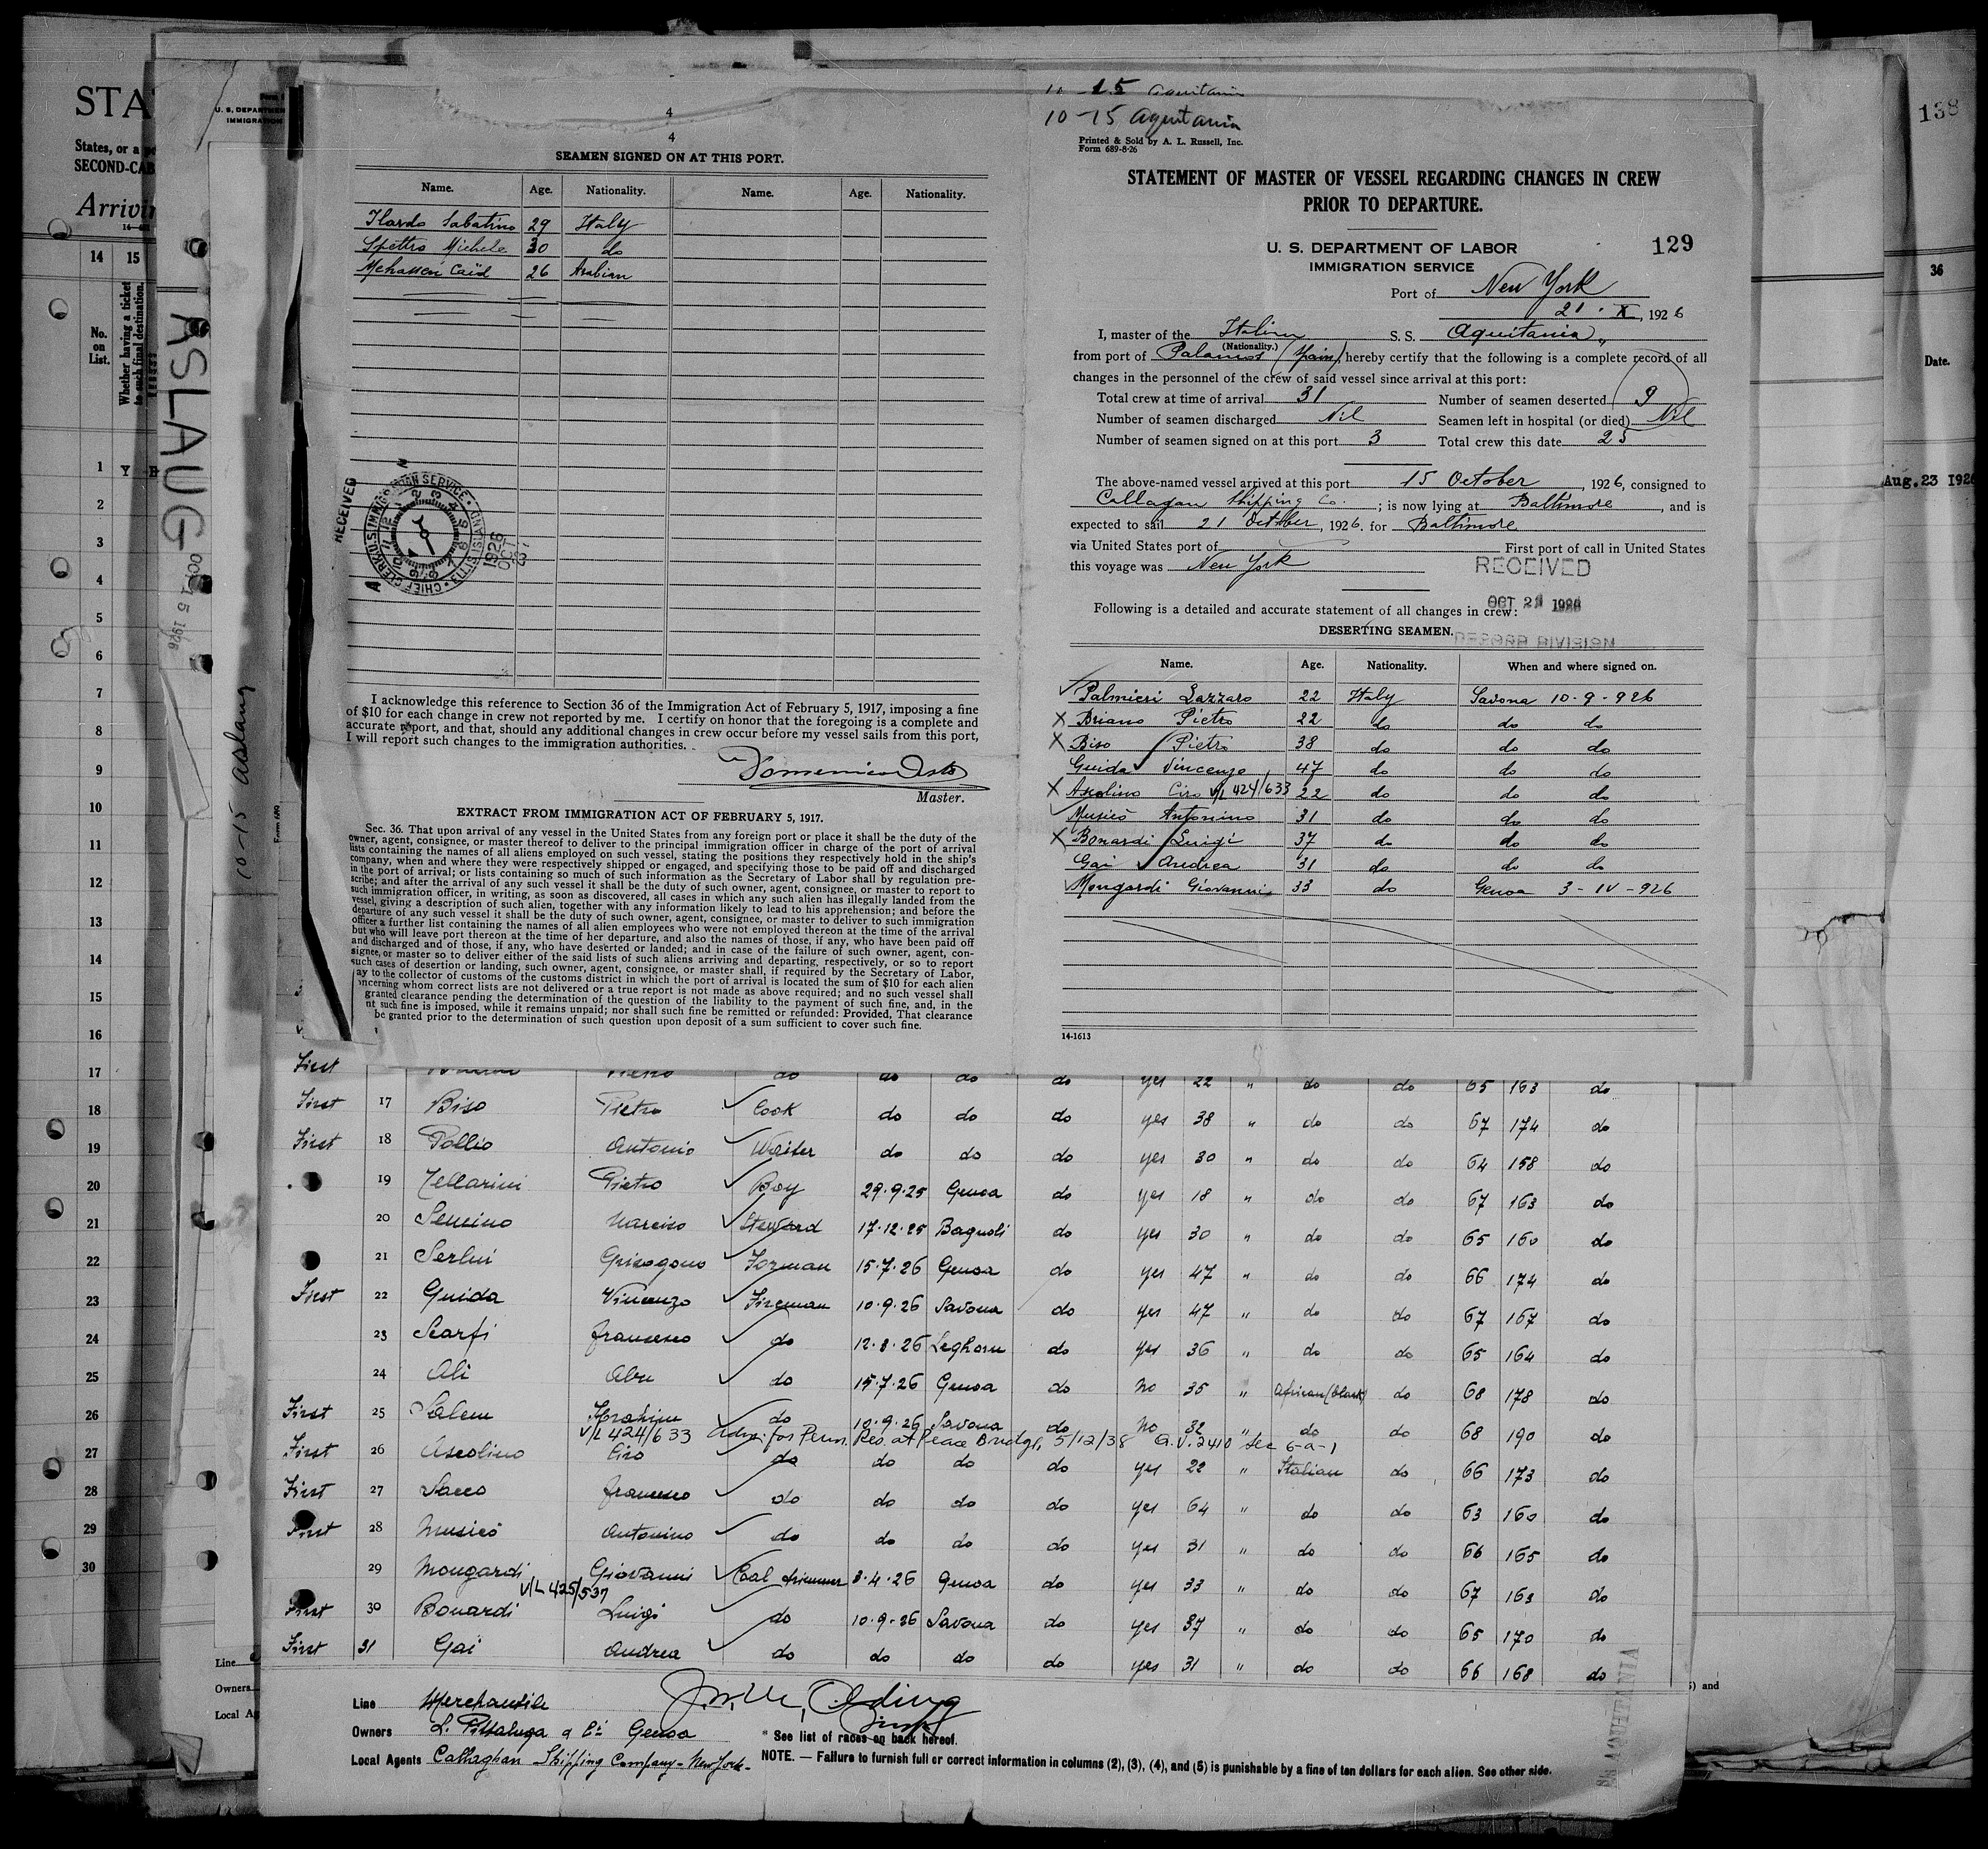 10-15 Aquitania
10-15 Aquitania
Printed & Sold by A. L. Russell, Inc.
Form 689-8-26
STATEMENT OF MASTER OF VESSEL REGARDING CHANGES IN CREW
PRIOR TO DEPARTURE.
U. S. DEPARTMENT OF LABOR
IMMIGRATION SERVICE
129
Port of New York
21 · X, 1926
I, master of the Italian S. S. Aquitania
(Nationality.)
from port of Palamos (Spain) hereby certify that the following is a complete record of all
changes in the personnel of the crew of said vessel since arrival at this port:
Total crew at time of arrival 31 Number of seamen deserted 9
Number of seamen discharged Nil Seamen left in hospital (or died) Nil
Number of seamen signed on at this port 3 Total crew this date 25
The above-named vessel arrived at this port 15 October, 1926, consigned to
Callagan Shipping Co. ; is now lying at Baltimore, and is
expected to sail 21 October, 1926. for Baltimore
via United States port of First port of call in United States
this voyage was New York
RECEIVED
OCT 21 1926
Following is a detailed and accurate statement of all changes in crew:
DESERTING SEAMEN.
Name. Age. Nationality. When and where signed on.
Palmieri Lazzaro 22 Italy Savona 10-9-926
X Briano Pietro 22 do do do
X Biso Pietro 38 do do do
Guida Vincenzo 47 do do do
X Ascolino Ciro V/L 424/633 22 do do do
Musicò Antonino 31 do do do
X Bonardi Luigi 37 do do do
Gai Andrea 31 do do do
Mongardi Giovanni 33 do Genoa 3-IV-926
14-1613
4
4
SEAMEN SIGNED ON AT THIS PORT.
Name. Age. Nationality. Name. Age. Nationality.
Ilardo Sabatino 29 Italy
Spettro Michele 30 do
Mehassen Caïd 26 Arabian
RECEIVED
CHIEF CLERK U.S. IMMIGRATION SERVICE · ELLIS ISLAND
1926
OCT
I acknowledge this reference to Section 36 of the Immigration Act of February 5, 1917, imposing a fine
of $10 for each change in crew not reported by me. I certify on honor that the foregoing is a complete and
accurate report, and that, should any additional changes in crew occur before my vessel sails from this port,
I will report such changes to the immigration authorities.
Domenico
Master.
EXTRACT FROM IMMIGRATION ACT OF FEBRUARY 5, 1917.
Sec. 36. That upon arrival of any vessel in the United States from any foreign port or place it shall be the duty of the
owner, agent, consignee, or master thereof to deliver to the principal immigration officer in charge of the port of arrival
lists containing the names of all aliens employed on such vessel, stating the positions they respectively hold in the ship's
company, when and where they were respectively shipped or engaged, and specifying those to be paid off and discharged
in the port of arrival; or lists containing so much of such information as the Secretary of Labor shall by regulation pre-
scribe; and after the arrival of any such vessel it shall be the duty of such owner, agent, consignee, or master to report to
such immigration officer, in writing, as soon as discovered, all cases in which any such alien has illegally landed from the
vessel, giving a description of such alien, together with any information likely to lead to his apprehension; and before the
departure of any such vessel it shall be the duty of such owner, agent, consignee, or master to deliver to such immigration
officer a further list containing the names of all alien employees who were not employed thereon at the time of the arrival
but who will leave port thereon at the time of her departure, and also the names of those, if any, who have been paid off
and discharged and of those, if any, who have deserted or landed; and in case of the failure of such owner, agent, con-
signee, or master so to deliver either of the said lists of such aliens arriving and departing, respectively, or so to report
such cases of desertion or landing, such owner, agent, consignee, or master shall, if required by the Secretary of Labor,
ay to the collector of customs of the customs district in which the port of arrival is located the sum of $10 for each alien
ncerning whom correct lists are not delivered or a true report is not made as above required; and no such vessel shall
granted clearance pending the determination of the question of the liability to the payment of such fine, and, in the
nt such fine is imposed, while it remains unpaid; nor shall such fine be remitted or refunded: Provided, That clearance
be granted prior to the determination of such question upon deposit of a sum sufficient to cover such fine.
First do do do do yes 22 " do do 65 163 do
First 17 Biso Pietro Cook do do do yes 38 " do do 67 174 do
First 18 Pollio Antonio Waiter do do do yes 30 " do do 64 158 do
19 Zellarini Pietro Boy 29·9·25 Genoa do yes 18 " do do 67 163 do
20 Semino Narciso Steward 17·12·25 Bagnoli do yes 30 " do do 65 160 do
21 Serlui Grisogono Forman 15·7·26 Genoa do yes 47 " do do 66 174 do
First 22 Guida Vincenzo Fireman 10·9·26 Savona do yes 47 " do do 67 167 do
23 Scarfi Francesco do 12·8·26 Leghorn do yes 36 " do do 65 164 do
24 Ali Abu do 15·7·26 Genoa do No 35 " African (black) do 68 178 do
First 25 Salem Ibrahim do 10·9·26 Savona do No 32 " do do 68 190 do
V/L 424/633 Adm. for Perm. Res. at Peace Bridge, 5/12/38 Q.V. 2410 Sec 6-a-1
First 26 Ascolino Ciro do do do do yes 22 " Italian do 66 173 do
First 27 Sacco Francesco do do do do yes 64 " do do 63 160 do
First 28 Musicò Antonino do do do do yes 31 " do do 66 165 do
29 Mongardi Giovanni Coal trimmer 3·4·26 Genoa do yes 33 " do do 67 163 do
V/L 425/537
First 30 Bonardi Luigi do 10·9·26 Savona do yes 37 " do do 65 170 do
First 31 Gai Andrea do do do do yes 31 " do do 66 168 do
Line Merchantile
Owners L. Pittaluga & Ci Genoa
Local Agents Callaghan Shipping Company - New York -
* See list of races on back hereof.
NOTE. — Failure to furnish full or correct information in columns (2), (3), (4), and (5) is punishable by a fine of ten dollars for each alien. See other side.
AQUITANIA
STA
States, or a
SECOND-CAB
Arrivin
14 15
No.
on
List.
Whether having a ticket
to such final destination.
1 Y
2
3
4
5
6
7
8
9
10
11
12
13
14
15
16
17
18
19
20
21
22
23
24
25
26
27
28
29
30
U. S. DEPARTMEN
IMMIGRATION
ASLAUG
OCT 15 1926
10-15 Aslaug
Form 689
Line
Owners
Local Ag
138
36
Date.
Aug. 23 1926
) and